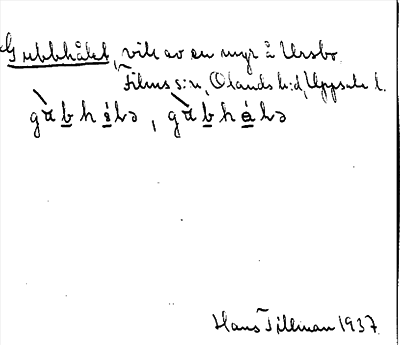 Gubbhålet, vik av en myr å Ursbo
Films s:n, Olands h:d, Uppsala l.
gàbhålə, gàbhálə
Hans Tillman 1937.